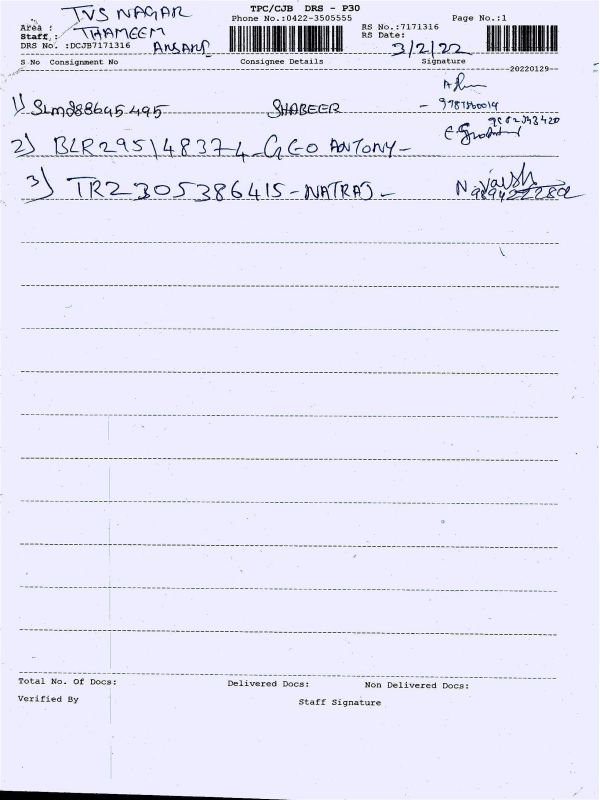 TVS NAGAR
TPC/CJB DRS - P30
Area :
Phone No.:0422-3505555
RS No.:7171316
Page No.:1
Staff :
THAMEEM
RS Date:
DRS No. :DCJB7171316
ANSARI
3/2/22
S No Consignment No
Consignee Details
Signature
20220129
1) SLM288645495
SHABEER
- 9787560014
2) BLR295148374 - GEO ANTONY -
3) TRZ305386415 - NATRAJ -
Total No. Of Docs:
Delivered Docs:
Non Delivered Docs:
Verified By
Staff Signature